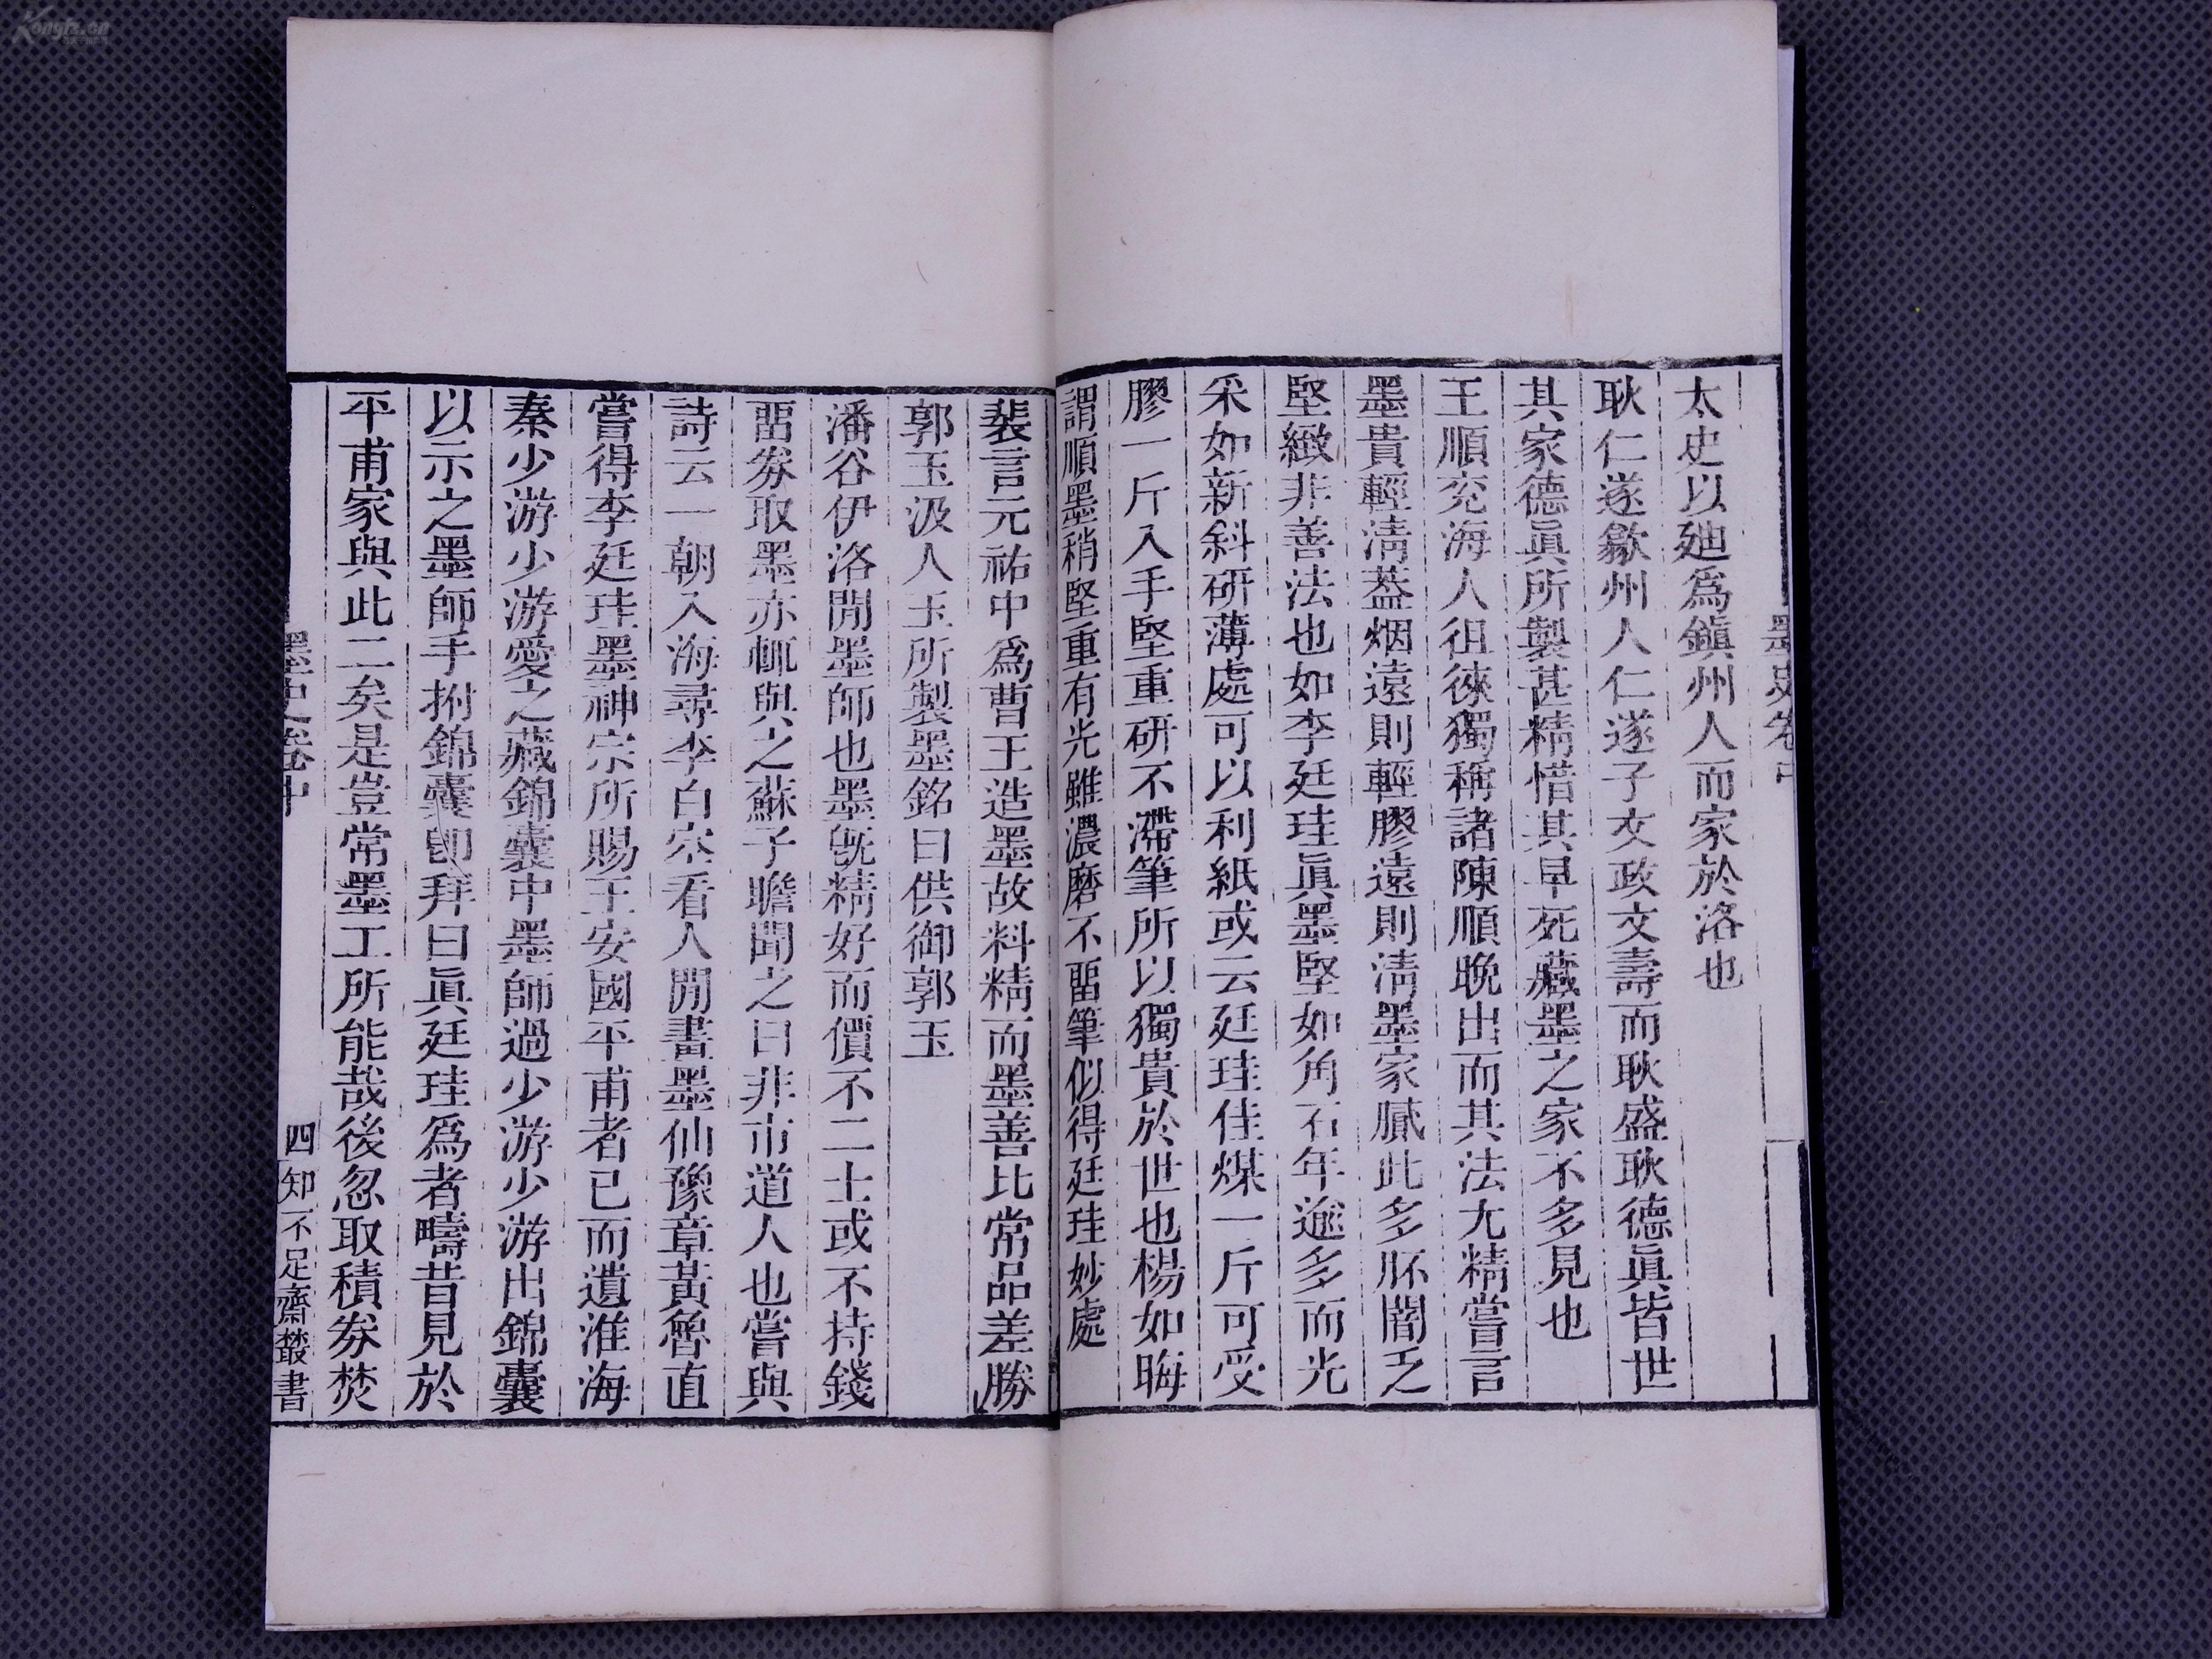 墨史卷中
太史以廸爲鎭州人而家於洛也
耿仁遂歙州人仁遂子文政文壽而耿盛耿德眞皆世
其家德眞所製甚精惜其早死藏墨之家不多見也
王順兖海人徂徠獨稱諸陳順晚出而其法尤精嘗言
墨貴輕淸葢烟遠則輕膠遠則淸墨家膩此多胚闇乏
堅緻非善法也如李廷珪眞墨堅如角石年逾多而光
采如新斜研薄處可以利紙或云廷珪佳煤一斤可受
膠一斤入手堅重研不滯筆所以獨貴於世也楊如晦
謂順墨稍堅重有光雖濃磨不畱筆似得廷珪妙處
裴言元祐中爲曹王造墨故料精而墨善比常品差勝
郭玉汲人玉所製墨銘曰供御郭玉
潘谷伊洛閒墨師也墨旣精好而價不二士或不持錢
畱券取墨亦輒與之蘇子瞻聞之曰非市道人也嘗與
詩云一朝入海尋李白空看人閒畫墨仙豫章黃魯直
嘗得李廷珪墨神宗所賜王安國平甫者已而遺淮海
秦少游少游愛之藏錦囊中墨師過少游少游出錦囊
以示之墨師手拊錦囊卽拜曰眞廷珪爲者疇昔見於
平甫家與此二矣是豈常墨工所能哉後忽取積券焚
墨史卷中
四
知不足齋叢書
Kongfz.cn